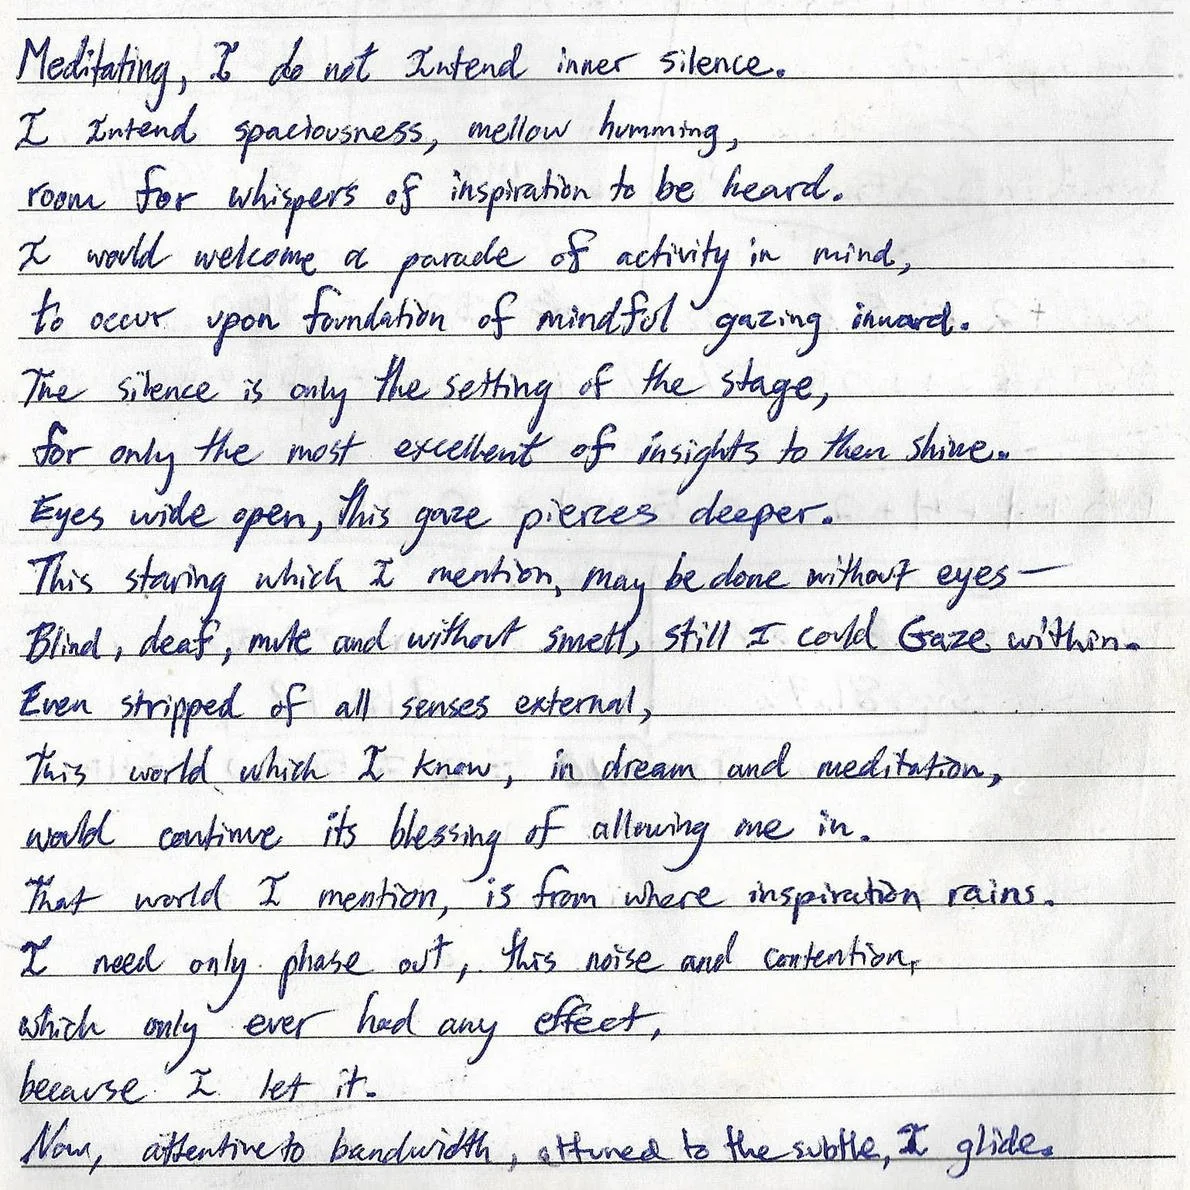 Meditating, I do not Intend inner silence.
I Intend spaciousness, mellow humming,
room for whispers of inspiration to be heard.
I would welcome a parade of activity in mind,
to occur upon foundation of mindful gazing inward.
The silence is only the setting of the stage,
for only the most excellent of insights to then shine.
Eyes wide open, this gaze pierces deeper.
This staring which I mention, may be done without eyes —
Blind, deaf, mute and without smell, still I could Gaze within.
Even stripped of all senses external,
This world which I know, in dream and meditation,
would continue its blessing of allowing me in.
That world I mention, is from where inspiration rains.
I need only phase out, this noise and contention,
which only ever had any effect,
because I let it.
Now, attentive to bandwidth, attuned to the subtle, I glide.